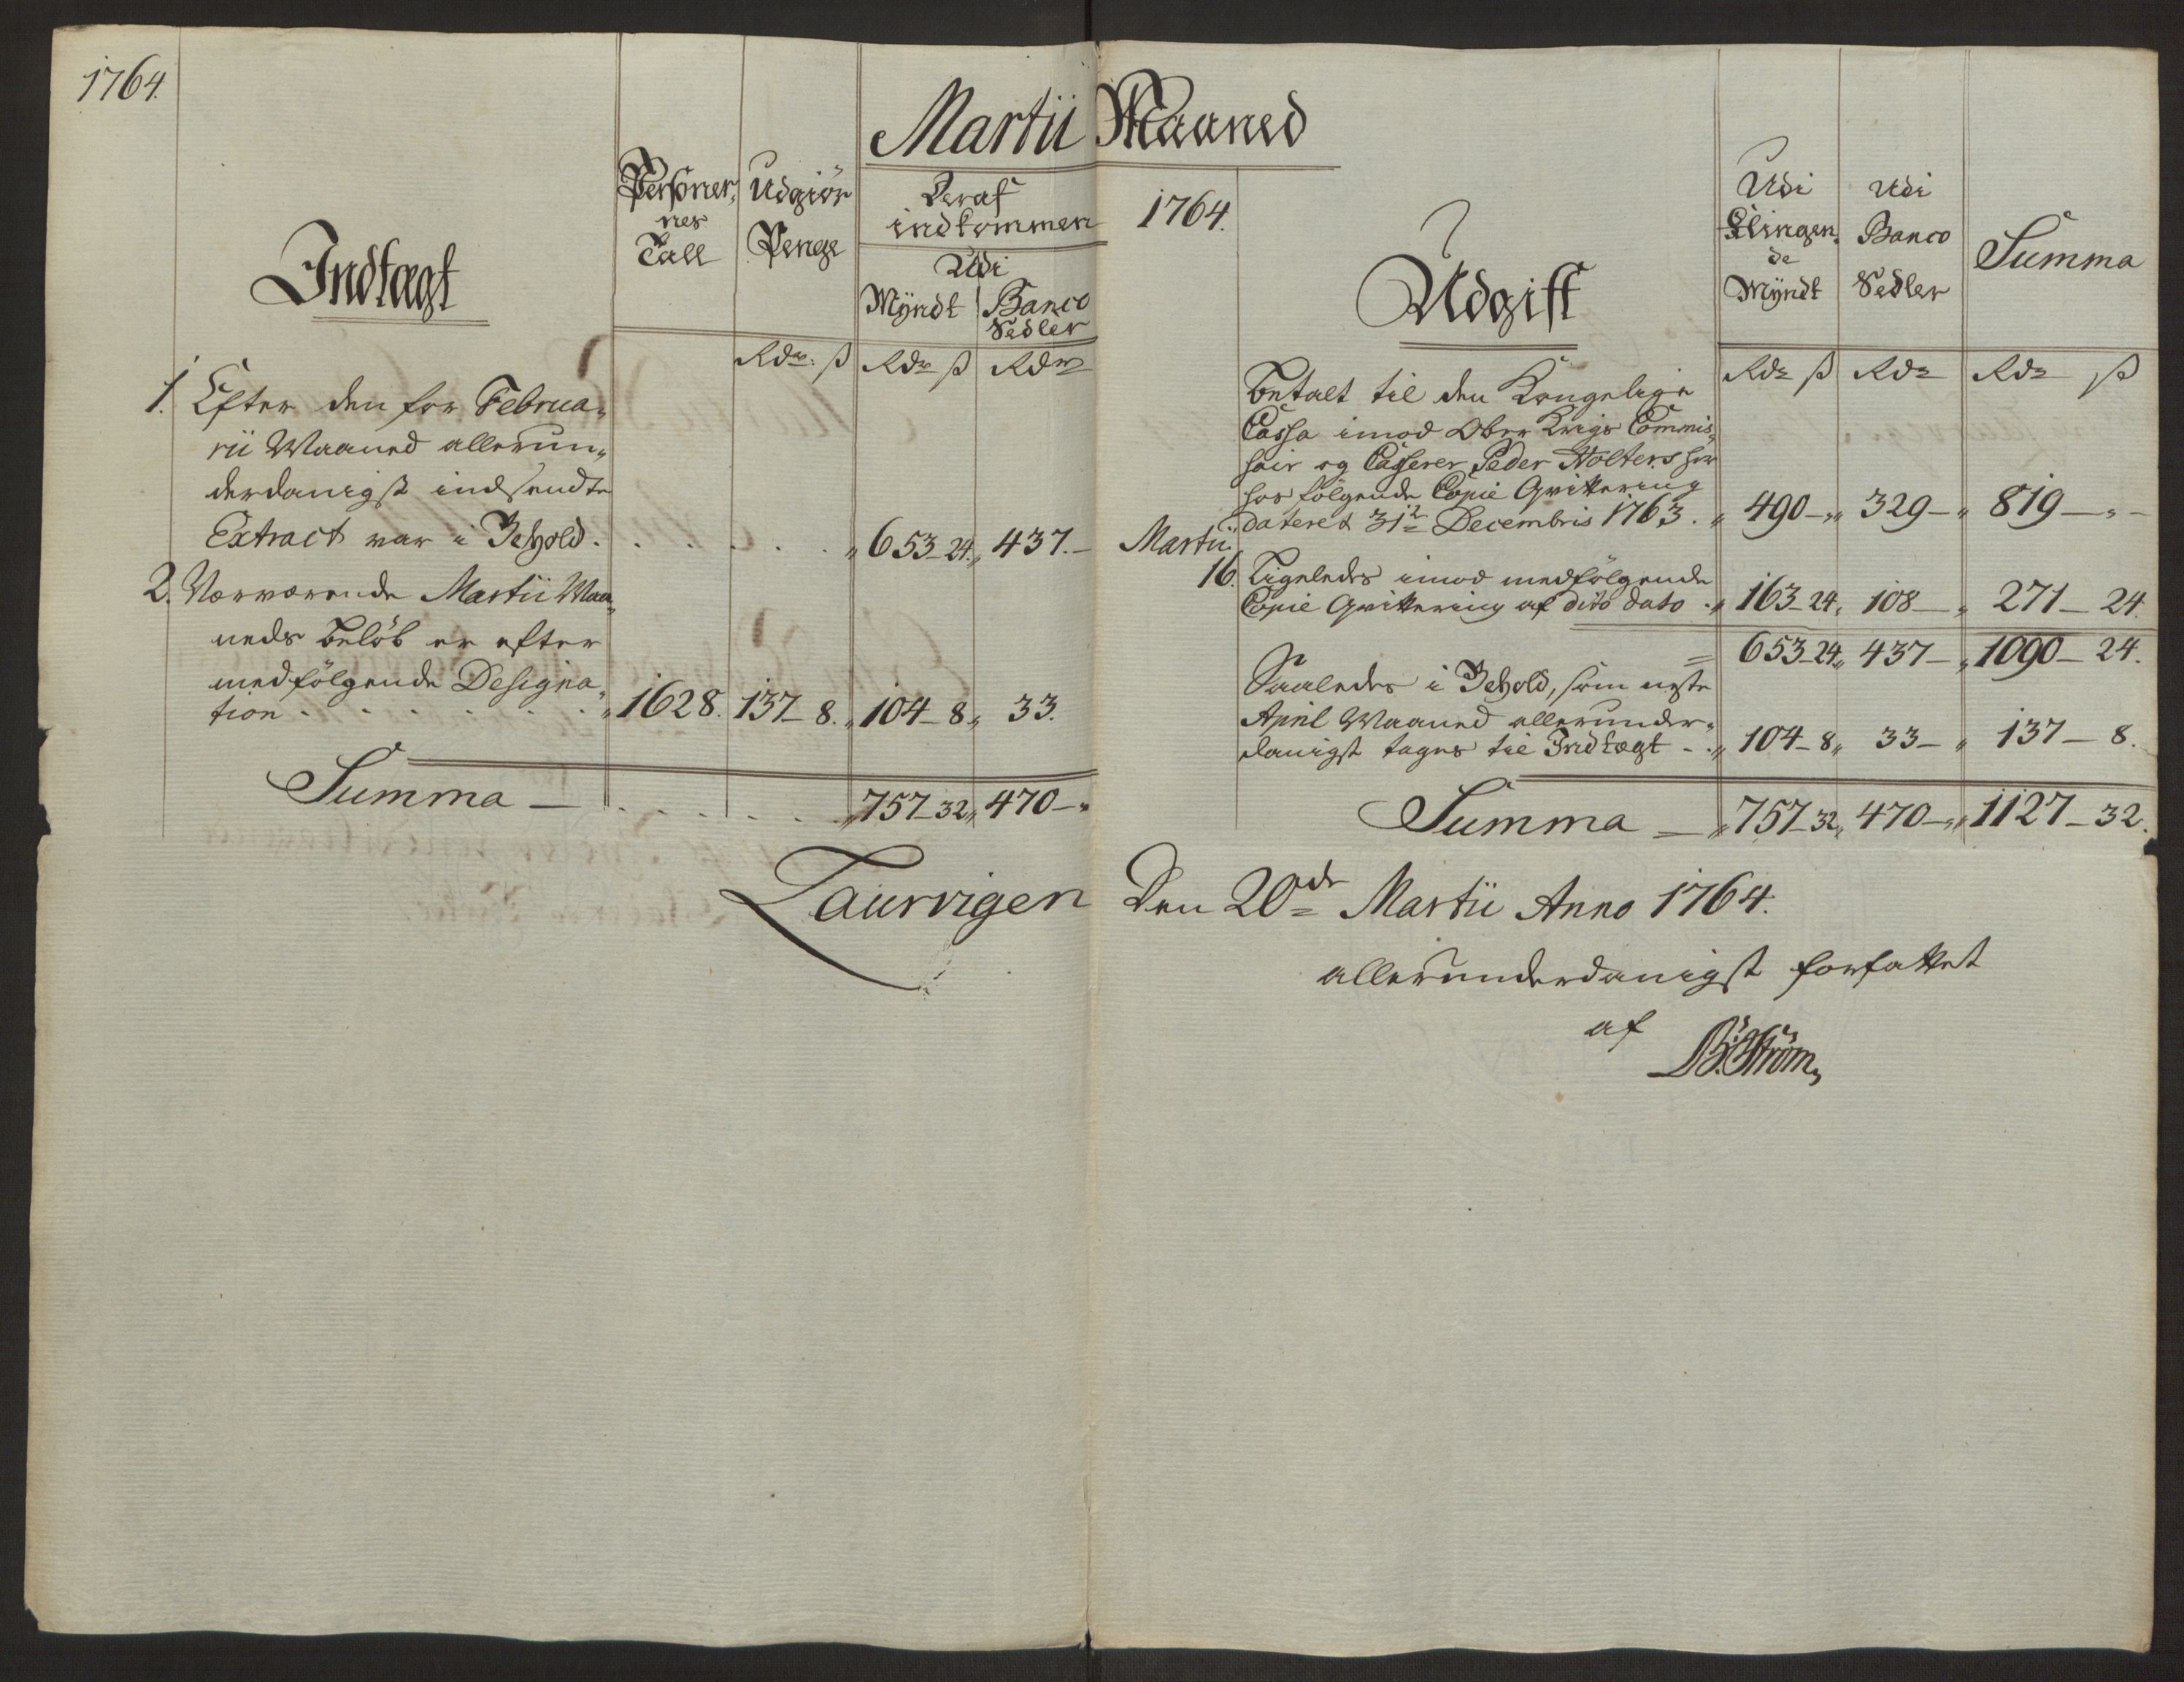 1764.
Martii Maaned
Indtægt
Personer,
nes
Tall
Udgiør
Penge
Deraf
indkommen
Udi
Myndt Banco
Sedler
Rdr. ß Rdr ß Rdr
1. Efter den for Februa,,
rii Maaned allerun,,
derdanigst indsendte
Extract var i Behold . . . . . . „ 653-24. „ 437.-
2. Nærværende Martii Maa,,
neds Beløb er efter
medfølgende Designa,,
tion . . . . . . „ 1628. 137-8. „ 104-8 „ 33.
Summa — . . . . . . „ 757-32 „ 470-„
Laurvigen
1764.
Udgift
Udi
Klingen,
de
Myndt
Udi
Banco
Sedler
Summa
Rdr ß Rdr Rdr ß
Betalt til den Kongelige
Cassa imod Ober Krigs Commis,,
sair og Casserer Peder Holters her
hos følgende Copie Qvittering
dateret 31te Decembris 1763. „ 490-„ 329-„ 819-„-
Martii.
16. Ligeledes imod medfølgende
Copie Qvittering af dito dato . „ 163-24 „ 108-„ 271-24.
= 653-24 „ 437-„ 1090-24.
Saaledes i Behold, som neste
April Maaned allerunder,,
danigst tages til Indtægt - . „ 104-8 „ 33-„ 137-8.
Summa — „ 757-32 „ 470-„ 1127-32.
Den 20de Martii Anno 1764.
allerunderdanigst forfattet
af